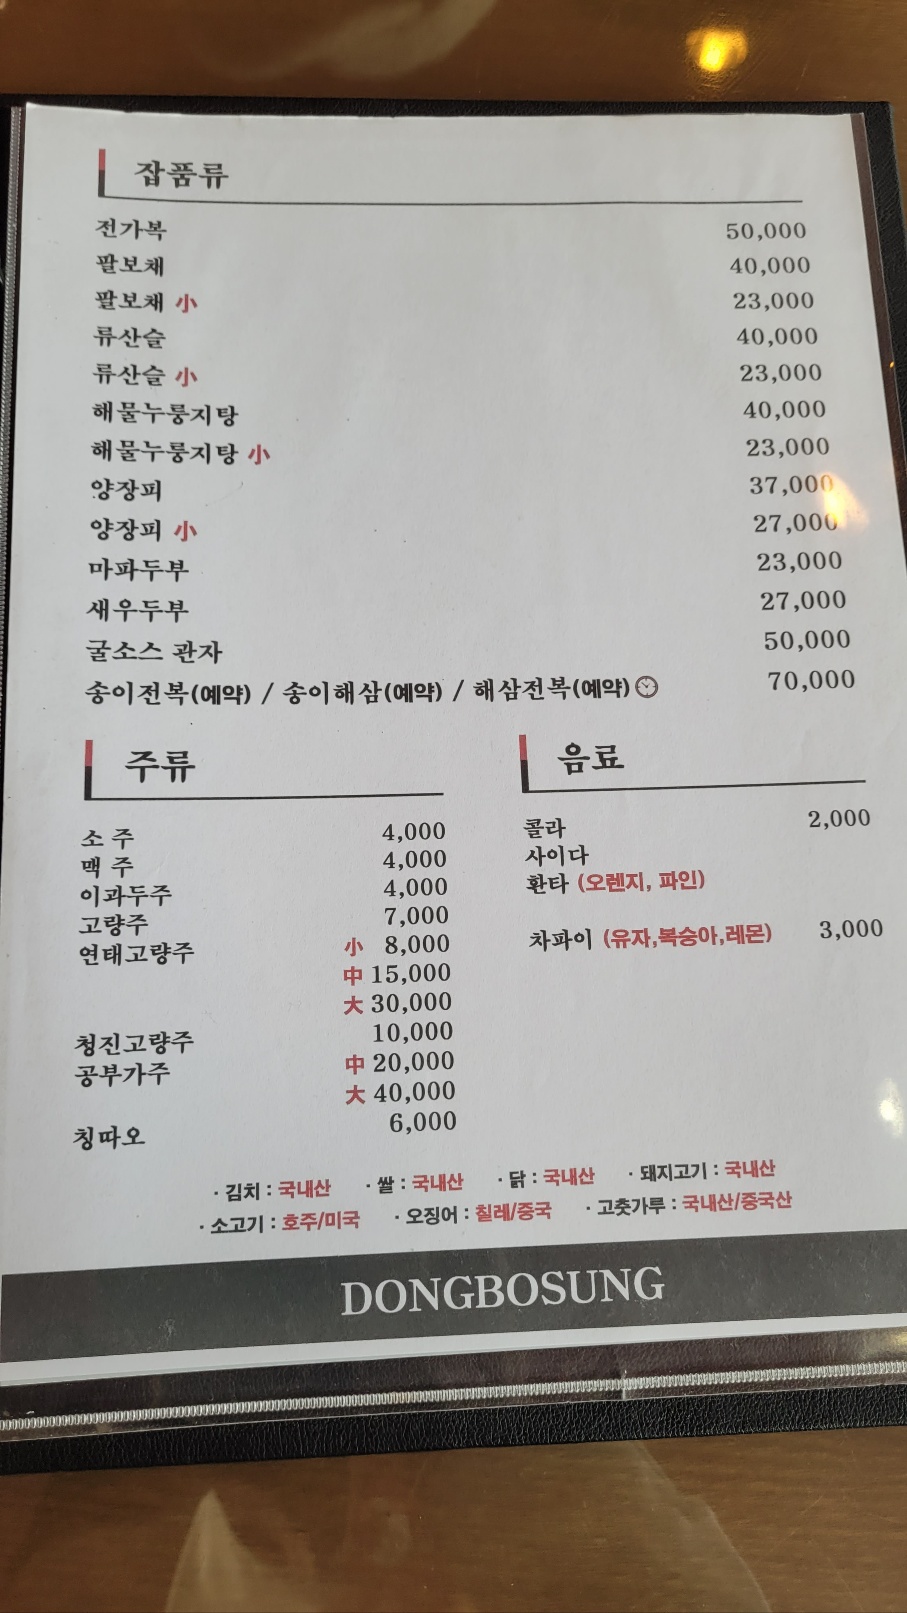 잡품류
전가복 50,000
팔보채 40,000
팔보채 小 23,000
류산슬 40,000
류산슬 小 23,000
해물누룽지탕 40,000
해물누룽지탕 小 23,000
양장피 37,000
양장피 小 27,000
마파두부 23,000
새우두부 27,000
굴소스 관자 50,000
송이전복(예약) / 송이해삼(예약) / 해삼전복(예약) 70,000
주류
소 주 4,000
맥 주 4,000
이과두주 4,000
고량주 7,000
연태고량주 小 8,000
中 15,000
大 30,000
청진고량주 10,000
공부가주 中 20,000
大 40,000
칭따오 6,000
음료
콜라 2,000
사이다
환타 (오렌지, 파인)
차파이 (유자,복숭아,레몬) 3,000
· 김치 : 국내산 · 쌀 : 국내산 · 닭 : 국내산 · 돼지고기 : 국내산
· 소고기 : 호주/미국 · 오징어 : 칠레/중국 · 고춧가루 : 국내산/중국산
DONGBOSUNG